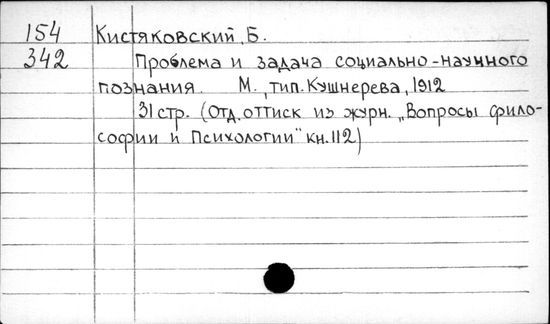 154 Кистяковский, Б.
342 Проблема и задача социально-научного
познания. М., тип. Кушнерева, 1912
31 стр. (Отд. оттиск из журн. „Вопросы фило-
софии и Психологии" кн. 112)